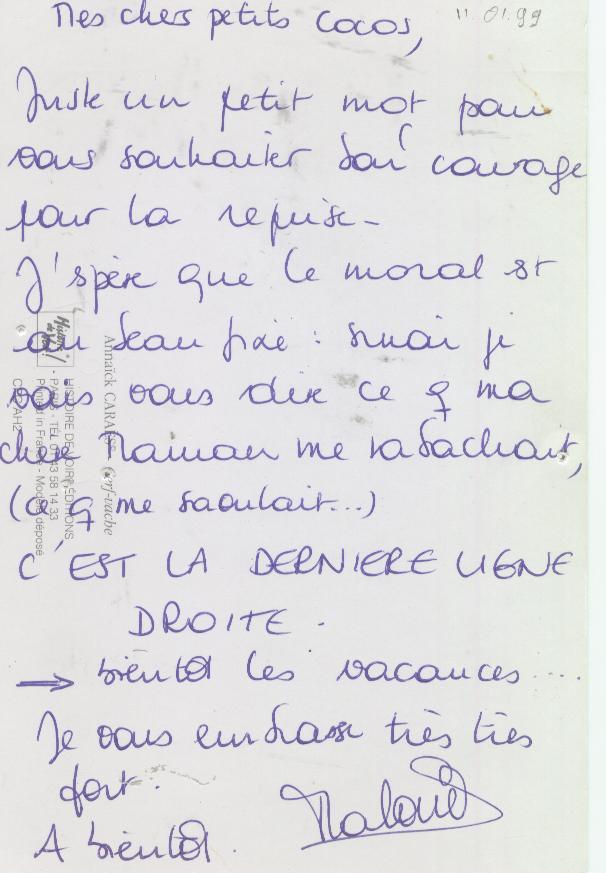 11.01.99
Mes chers petits cocos,
Juste un petit mot pour
vous souhaiter bon courage
pour la reprise -
J'espère que le moral est
au beau fixe : sinon je
vais vous dire ce q ma
chère Maman me rabachait,
(ce q me saoulait...)
C'EST LA DERNIERE LIGNE
DROITE.
→ bientôt les vacances ....
Je vous embrasse très très
fort.
A bientôt.
Annaïck CARAËS Cerf-vache
HISTOIRE DE VOIR ÉDITIONS
PARIS - TÉL 01 43 58 14 33
Printed in France - Modèle déposé